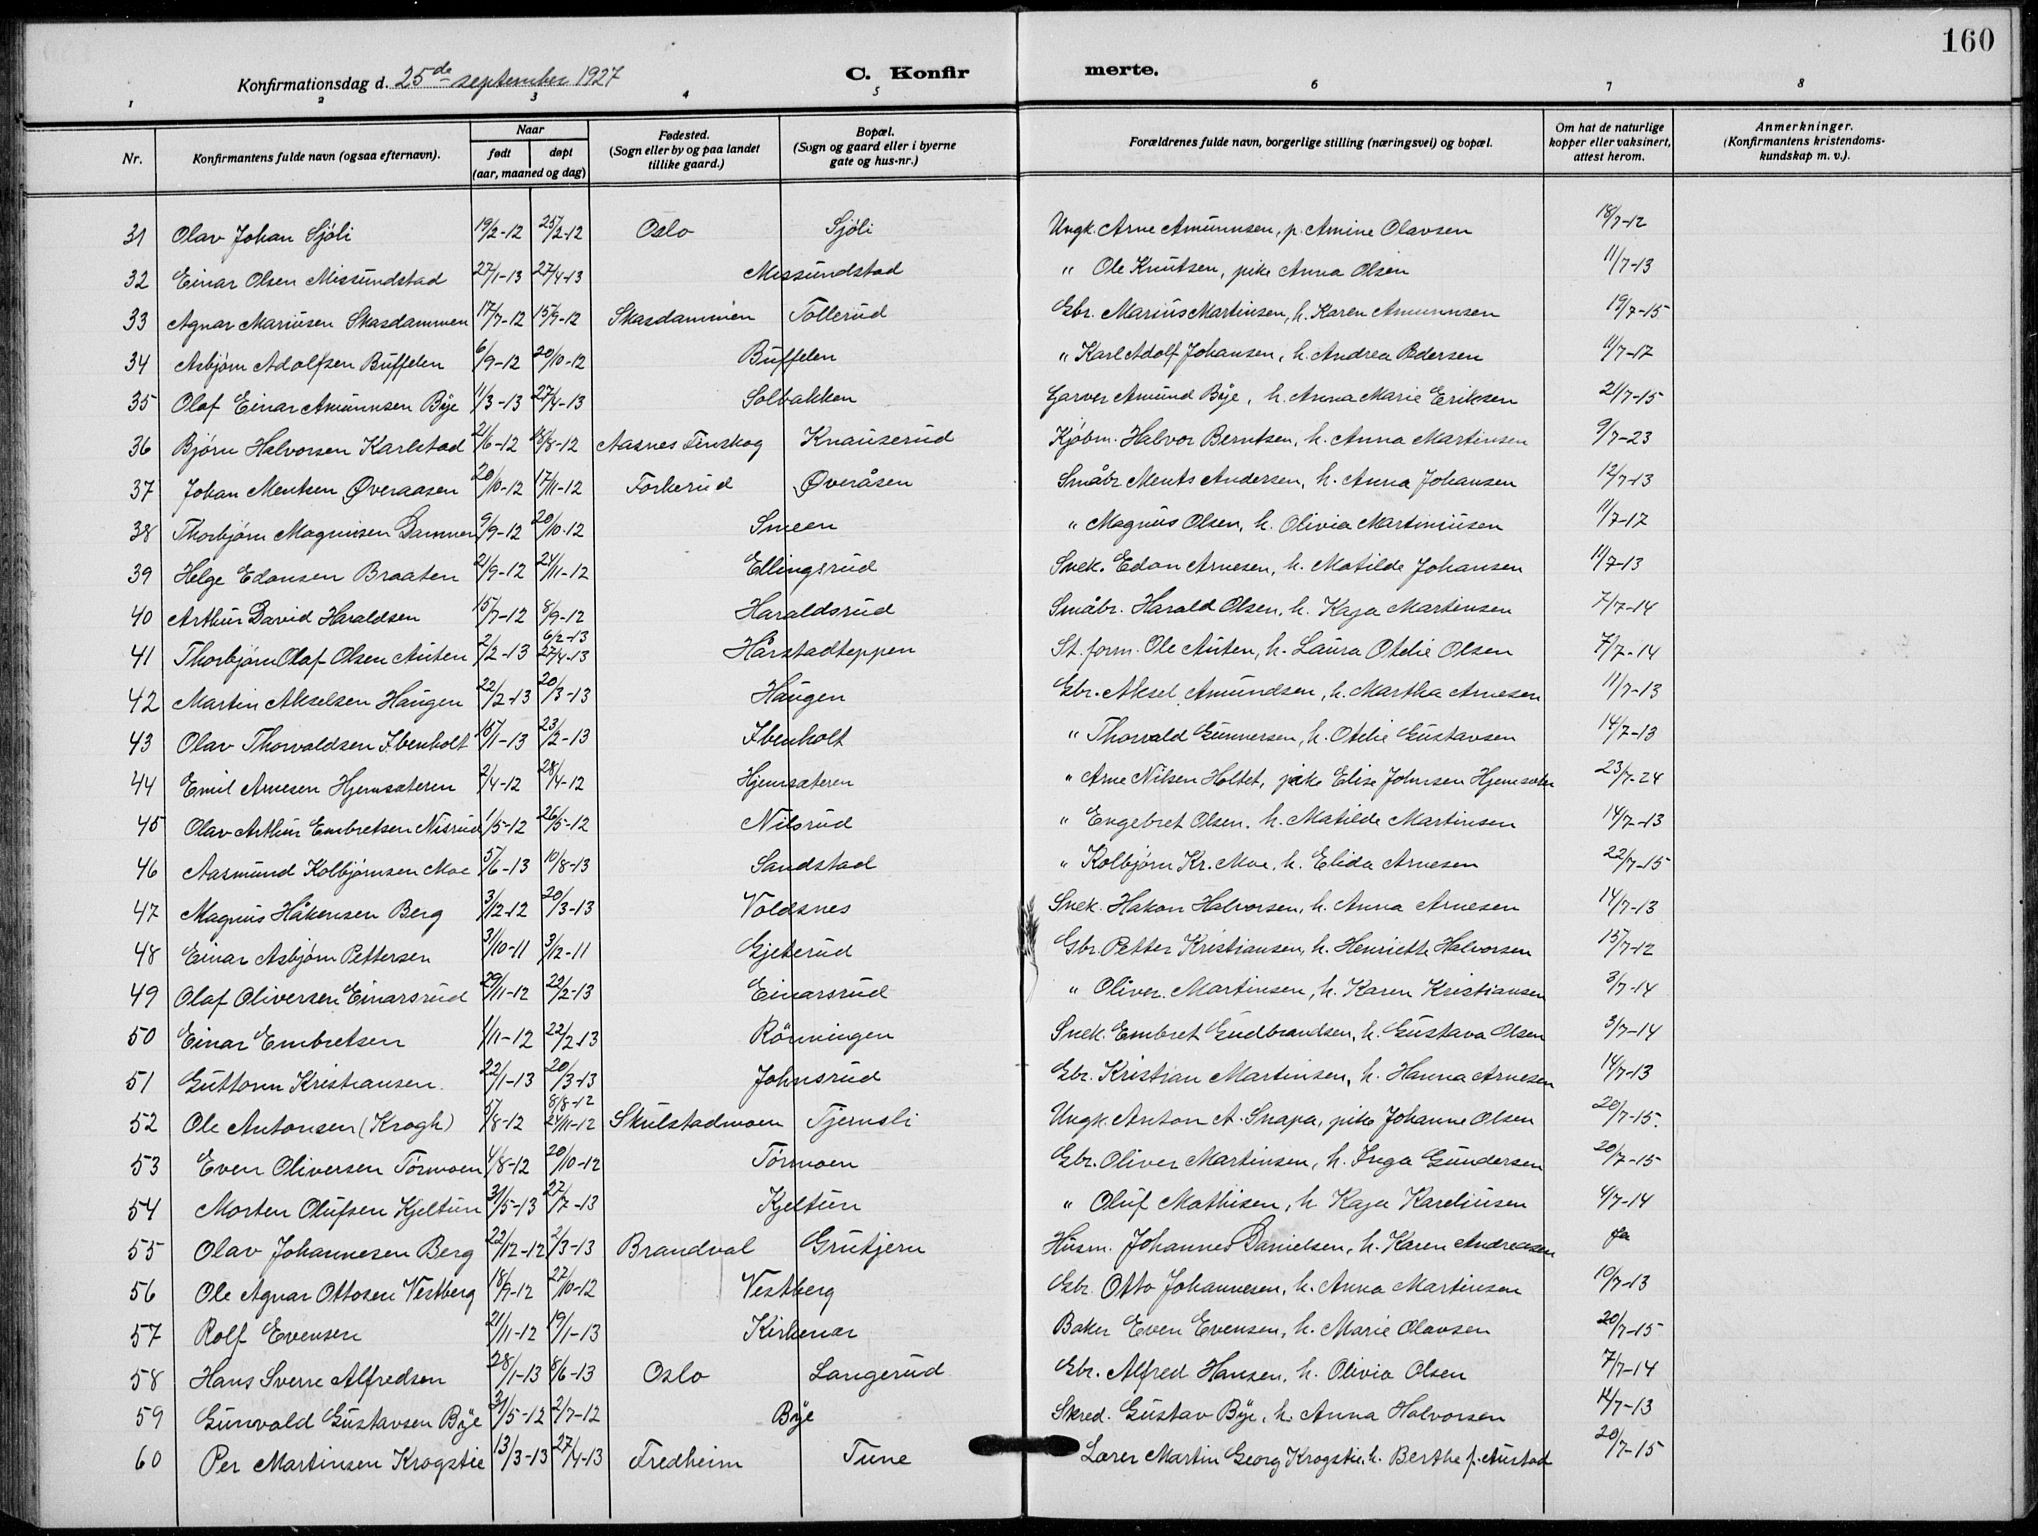 160
Konfirmationsdag d. 25de september 1927 C. Konfir merte.
1 2 3 4 5 6 7 8
Nr. Konfirmantens fulde navn (ogsaa efternavn). Naar født døpt (aar, maaned og dag) Fødested. (Sogn eller by og paa landet tillike gaard.) Bopæl. (Sogn og gaard eller i byerne gate og hus-nr.) Forældrenes fulde navn, borgerlige stilling (næringsvei) og bopæl. Om hat de naturlige kopper eller vaksinert, attest herom. Anmerkninger. (Konfirmantens kristendoms-kundskap m. v.).
31 Olav Johan Sjöli 19/2-12 25/2-12 Oslo Sjöli Ungk. Arne Amunnsen, p. Amine Olavsen 18/7-12
32 Einar Olsen Missundstad 27/1-13 27/4-13 Missundstad " Ole Knutsen, pike Anna Olsen 11/7-13
33 Agnar Mariusen Skasdammen 17/7-12 15/9-12 Skasdammen Tollerud Gbr. Marius Martinsen, h. Karen Amunnsen 19/7-15
34 Asbjørn Adolfsen Buffelen 6/9-12 20/10-12 Buffelen " Karl Adolf Johansen, h. Andrea Pedersen 11/7-17
35 Olaf Einar Amunnsen Bye 11/3-13 27/4-13 Solbakken Garver Amund Bye, h. Anna Marie Eriksen 21/7-15
36 Bjørn Halvorsen Karlstad 21/6-12 18/8-12 Aasnes Finskog Knauserud Kjöbm. Halvor Berntsen, h. Anna Martinsen 9/7-23
37 Johan Mentsen Øveraasen 20/10-12 17/11-12 Forkerud Øveråsen Småbr. Ments Andersen, h. Anna Johansen 12/7-13
38 Thorbjørn Magnusen Dammen 9/9-12 20/10-12 Smeen " Magnus Olsen, h. Olivia Martiniusen 11/7-17
39 Helge Edonsen Braaten 21/9-12 24/11-12 Ellingsrud Snek. Edon Arnesen, h. Matilde Johansen 11/7-13
40 Arthur David Haraldsen 15/7-12 8/9-12 Haraldsrud Småbr. Harald Olsen, h. Kaja Martinsen 7/7-14
41 Thorbjørn Olaf Olsen Auten 2/2-13 6/2-13 27/4-13 Hårstadteppen St. form. Ole Auten, h. Laura Otelie Olsen 7/7-14
42 Martin Akselsen Haugen 22/2-13 20/3-13 Haugen Gbr. Aksel Amundsen, h. Martha Arnesen 11/7-13
43 Olav Thorvaldsen Ibenholt 16/1-13 23/2-13 Ibenholt " Thorvald Gunnersen, h. Otelie Gustavsen 14/7-13
44 Emil Arnesen Hjemsæteren 2/4-12 28/4-12 Hjemsæteren " Arne Nilsen Holtet, pike Elise Johnsen 23/7-24
45 Olav Arthur Embretsen Nisrud 1/5-12 26/5-12 Nilsrud " Engebret Olsen. h. Matilde Martinsen 14/7-13
46 Aasmund Kolbjørnsen Moe 5/6-13 10/8-13 Sandstad " Kolbjørn Kr. Moe, h. Elida Arnesen 22/7-15
47 Magnus Håkensen Berg 3/12-12 20/3-13 Voldsnes Snek. Hakon Halvorsen, h. Anna Arnesen 14/7-13
48 Einar Asbjørn Pettersen 31/10-11 3/12-11 Gjeterud Gbr. Petter Kristiansen, h. Henriette Halvorsen 15/7-12
49 Olaf Oliversen Einarsrud 29/11-12 22/2-13 Einarsrud " Oliver Martinsen, h. Karen Kristiansen 3/7-14
50 Einar Embretsen 1/11-12 22/2-13 Rönningen Snek. Embret Gudbrandsen, h. Gustava Olsen 3/7-14
51 Guttorm Kristiansen. 22/1-13 20/3-13 Johnsrud Gbr. Kristian Martinsen, h. Hanna Arnesen 14/7-13
52 Ole Antonsen (Krogh) 5/8-12 8/8-12 24/11-12 Skulstadmoen Tjernsli Ungk. Anton A. Snapa, pike Johanne Olsen 20/7-15.
53 Even Oliversen Törmoen 4/8-12 20/10-12 Törmoen Gbr. Oliver Martinsen, h. Inga Gundersen 20/7-15
54 Morten Olufsen Kjeltun 31/5-13 27/7-13 Kjeltun " Oluf Mathisen, h. Kaja Kareliusen 4/7-14
55 Olav Johannesen Berg 22/12-12 2/3-13 Brandval Grutjern Husm. Johannes Danielsen, h. Karen Andreasen ja
56 Ole Agnar Ottosen Vestberg 18/9-12 27/10-12 Vestberg Gbr. Otto Johannesen, h. Anna Martinsen 10/7-13
57 Rolf Evensen 21/11-12 19/1-13 Kirkenær Baker Even Evensen, h. Marie Olavsen 20/7-15
58 Hans Sverre Alfredsen 28/1-13 8/6-13 Oslo Langerud Gbr. Alfred Hansen, h. Olivia Olsen 7/7-14
59 Gunvald Gustavsen Bye 31/5-12 2/7-12 Bye Skred. Gustav Bye, h. Anna Halvorsen 14/7-13
60 Per Martinsen Krogstie 13/3-13 27/4-13 Fredheim Tune Lærer Martin Georg Krogstie, h. Berthe f. Austad 20/7-15